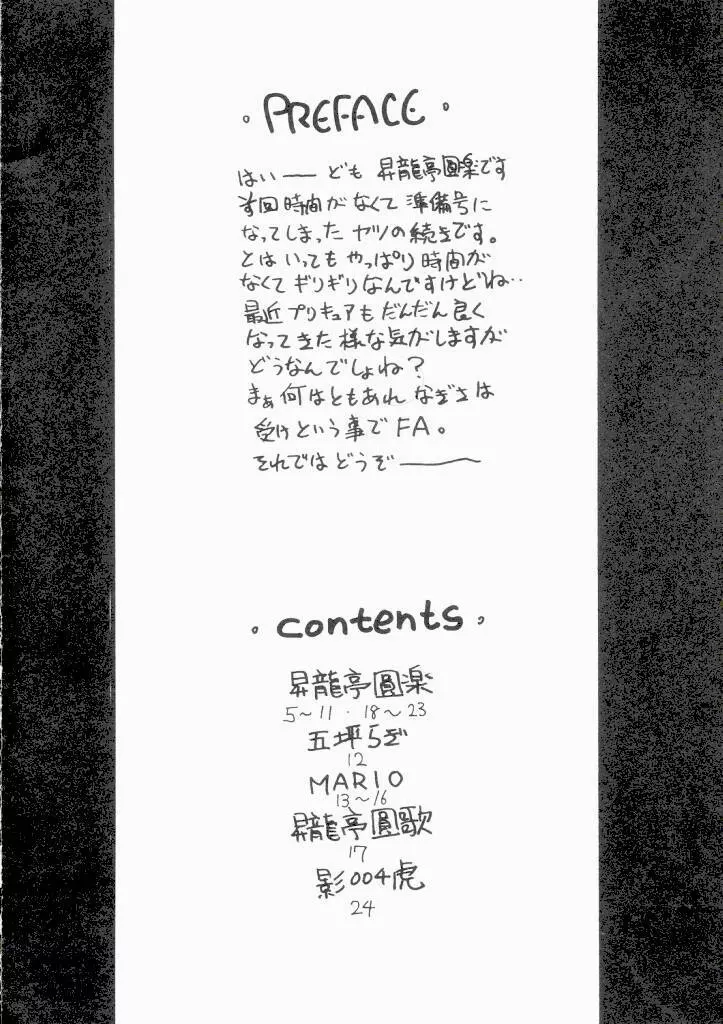 ・PREFACE・
はい── ども 昇龍亭圓楽です
前回時間がなくて準備号に
なってしまったヤツの続きです。
とはいってもやっぱり時間が
なくてギリギリなんですけどね‥
最近プリキュアもだんだん良く
なってきた様な気がしますが
どうなんでしょね?
まぁ何はともあれ なぎさは
受けという事でFA。
それではどうぞ───
・contents・
昇龍亭圓楽
5～11・18～23
五坪らぎ
12
MARIO
13～16
昇龍亭圓歌
17
影004虎
24